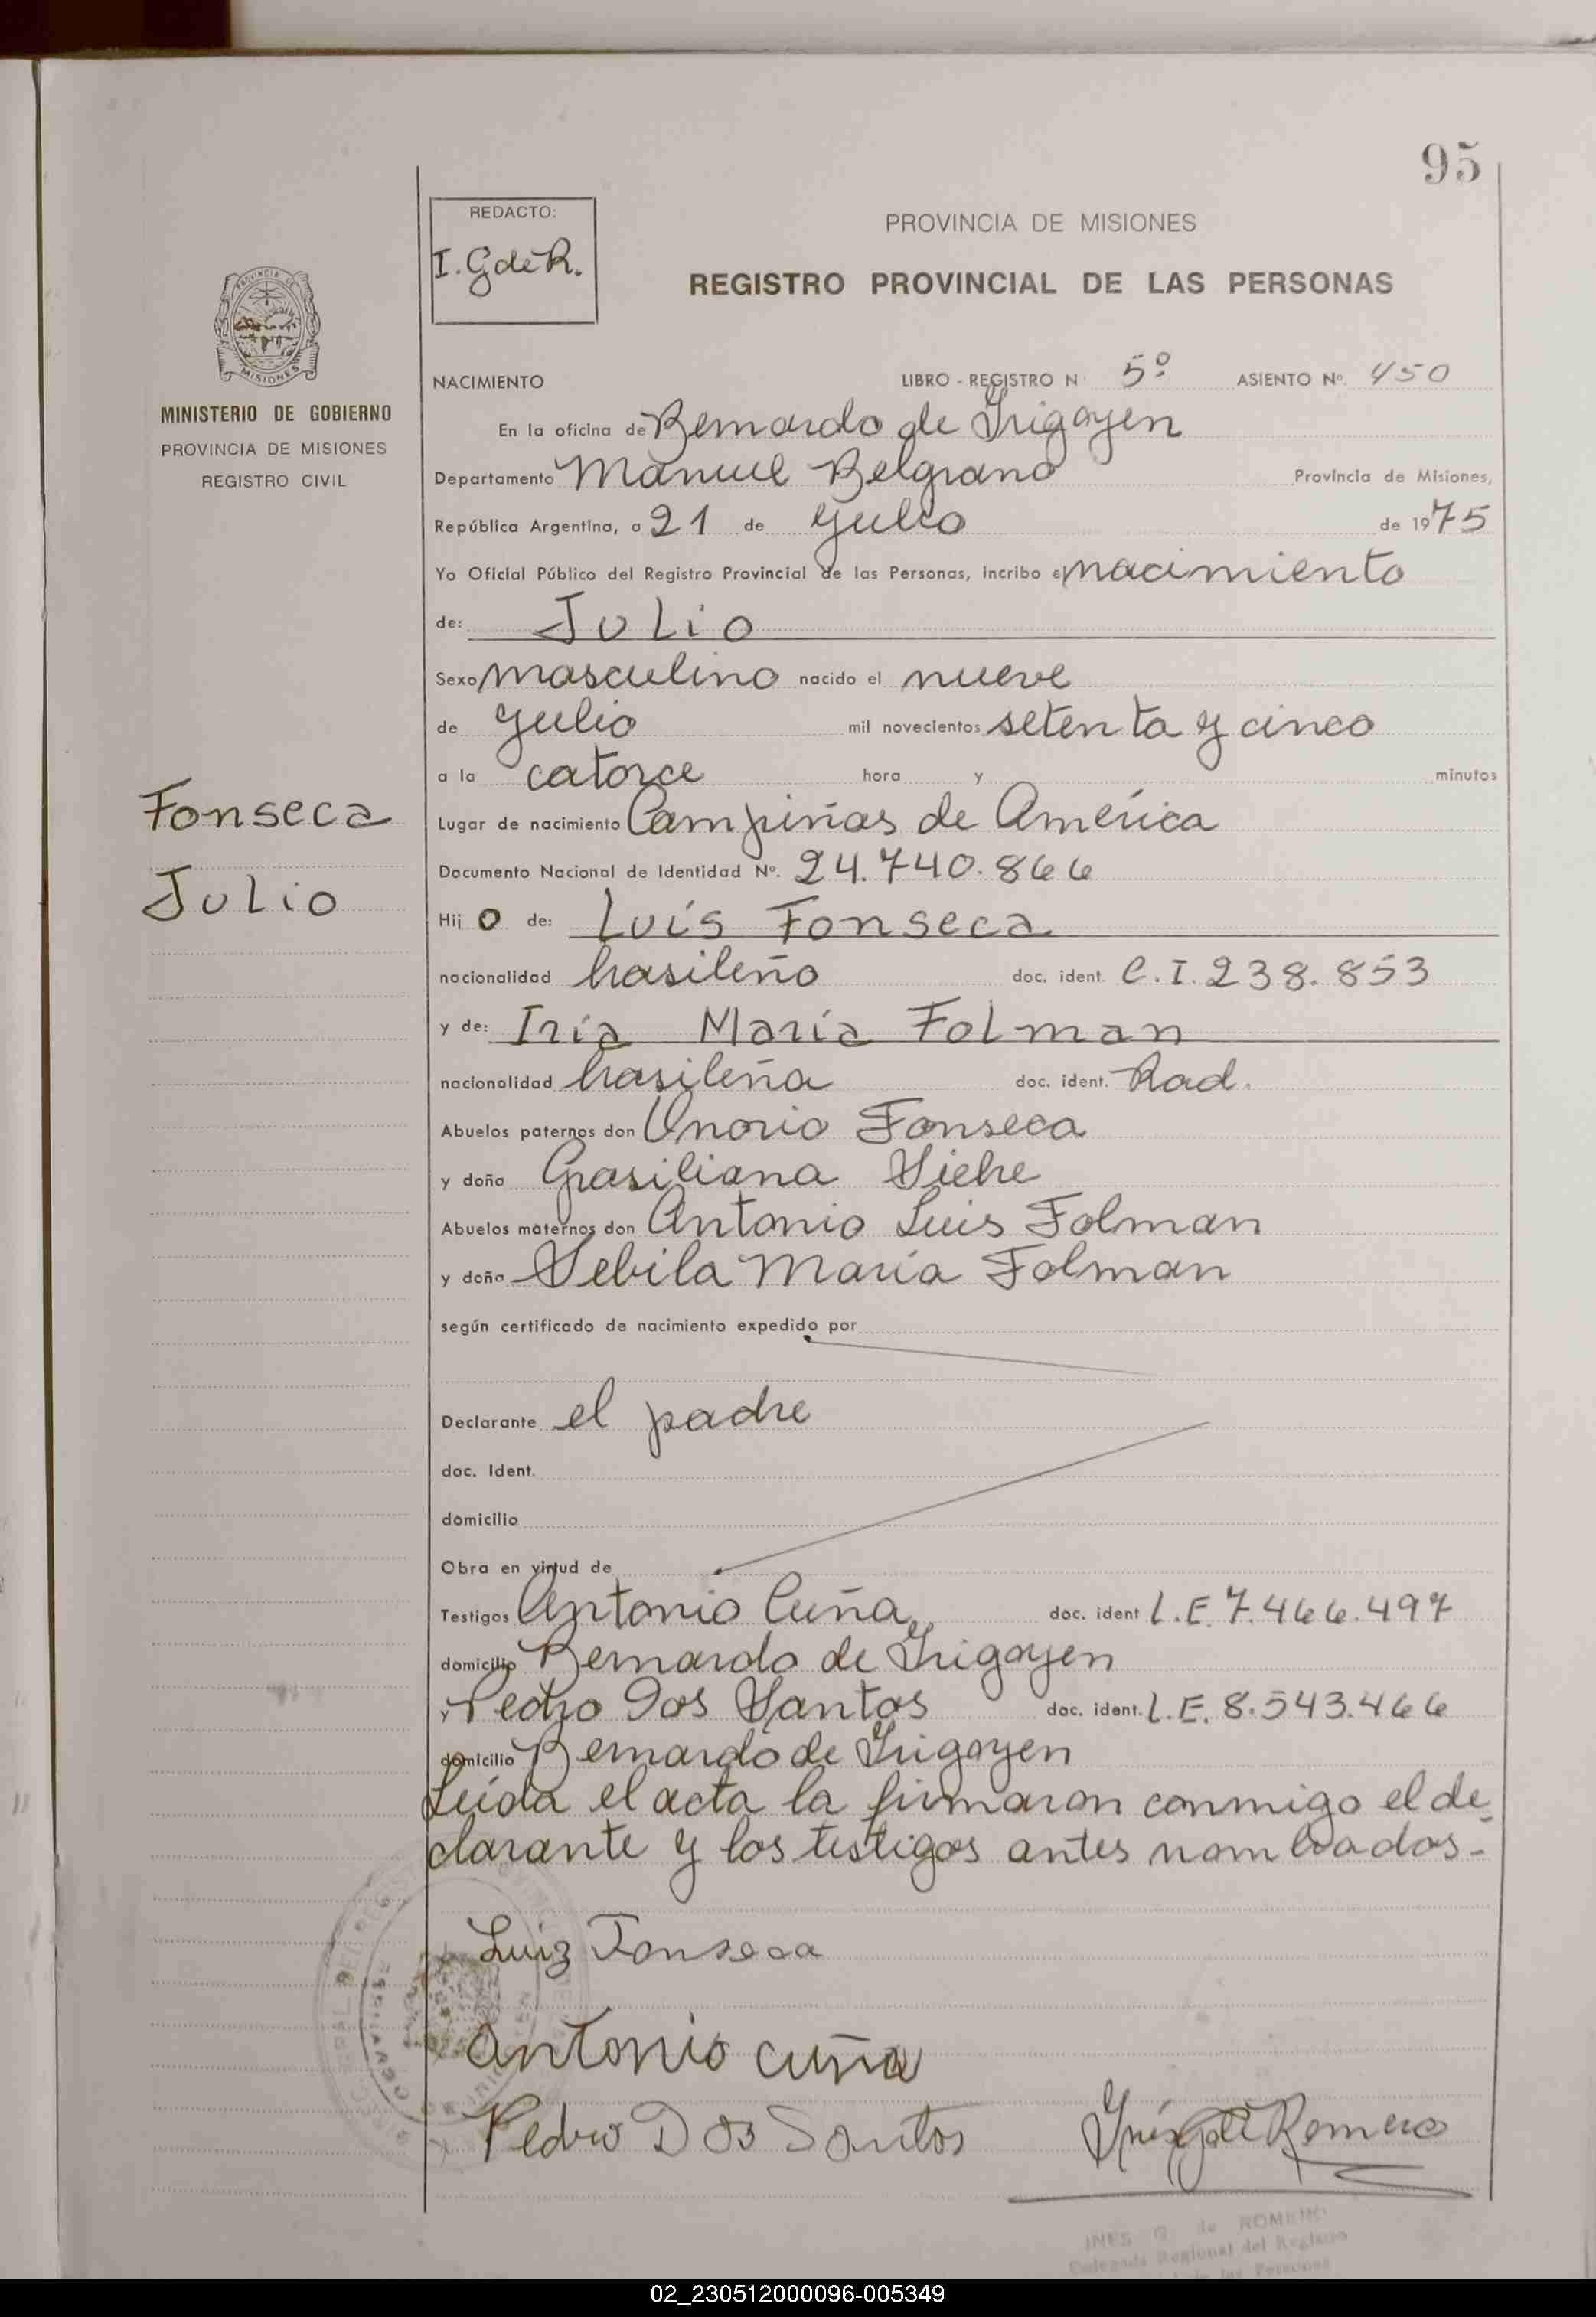 95
REDACTO:
I. G de R.
PROVINCIA DE MISIONES
REGISTRO PROVINCIAL DE LAS PERSONAS
PROVINCIA DE
MISIONES
MINISTERIO DE GOBIERNO
PROVINCIA DE MISIONES
REGISTRO CIVIL
NACIMIENTO LIBRO - REGISTRO N 5º ASIENTO Nº. 450
En la oficina de Bernardo de Irigoyen
Departamento Manuel Belgrano Provincia de Misiones,
República Argentina, a 21 de Julio de 1975
Yo Oficial Público del Registro Provincial de las Personas, incribo el nacimiento
de: Julio
Sexo masculino nacido el nueve
de Julio mil novecientos setenta y cinco
a la catorce hora y minutos
Fonseca
Julio
Lugar de nacimiento Campiñas de América
Documento Nacional de Identidad Nº. 24.740.866
Hij o de: Luís Fonseca
nacionalidad brasileño doc. ident. C.I. 238.853
y de: Iria María Folman
nacionalidad brasileña doc. ident. Rad.
Abuelos paternos don Onorio Fonseca
y doña Grasiliana Siebre
Abuelos maternos don Antonio Luis Folman
y doña Sebila María Folman
según certificado de nacimiento expedido por
Declarante el padre
doc. Ident.
domicilio
Obra en virtud de
Testigos Antonio Cuña doc. ident L.E. 7.466.497
domicilio Bernardo de Irigoyen
y Pedro Dos Santos doc. ident. L.E. 8.543.466
domicilio Bernardo de Irigoyen
Leída el acta la firmaron conmigo el de
clarante y los testigos antes nombrados.-
Luiz Fonseca
Antonio cuña
Pedro Dos Santos
Inés G de Romero
INES G. de ROMERO
Delegada Regional del Registro
de las Personas
02_230512000096-005349